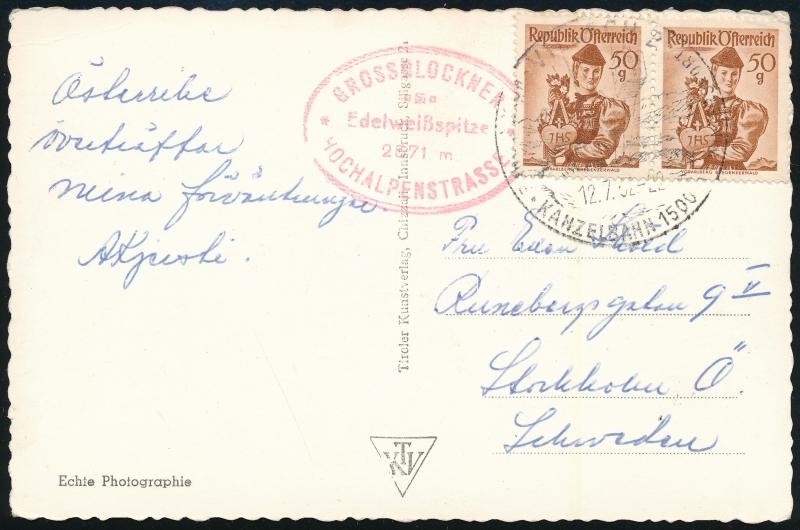 Österrike
överträffar
mina förväntningar.
GROSSGLOCKNER
Edelweißspitze
2571 m
HOCHALPENSTRASSE
Republik Österreich
50
g
JHS
VORARLBERG BREGENZERWALD
Republik Österreich
50
g
JHS
VORARLBERG BREGENZERWALD
12.7.
KANZELBAHN 1500
Tiroler Kunstverlag, Chizzali, Innsbruck, Sillgasse 21
Fru
Runebergsgatan 9 V
Stockholm Ö.
Schweden
TKV
Echte Photographie